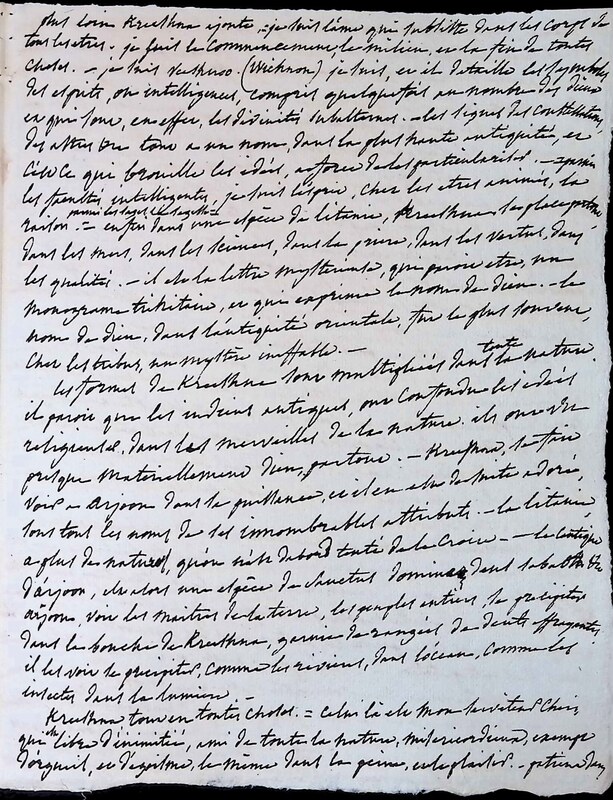 plus loin Kreethna ajoute - je suis l'ame qui subsiste dans les corps de
tous les etres. je suis le commencement, le milieu, et la fin de toutes
choses. - je suis (Wichnou) je suis, et il detaille les symboles
des esprits, ou intelligences, compris quelquefois au nombre des dieux
et qui sont, en effet, les divinités subalternes. - les signes des constellations
des astres tous a un nom, dans la plus haute antiquité, et
c'est ce qui brouille les idées, a force de les particulariser. - parmi
les facultés intelligentes, je suis l'esprit, chez les etres animés, la
raison. - parmi les sages la sagesse - enfin dans une espece de litanie, Kreethna se place partout
dans les mots, dans les sciences, dans la priere, dans les vertus, dans
les qualités. - il est la lettre mysterieuse, qui paroit etre, un
monograme trinitaire, et qui exprime le nom de dieu. - le
nom de dieu, dans l'antiquité orientale, fut le plus souvent,
chez les tribus, un mystère ineffable. -
les formes de Kreethna sont multipliées dans toute la nature.
il paroit que les indiens antiques, ont confondu les idées
religieuses, dans les merveilles de la nature. ils ont vu
presque materiellement dieu, partout. - Kreethna, se fait
voir a arjoon dans sa puissance, et il en est de suite adoré,
sous tous les noms de ses innombrables attributs. - la litanie,
a plus de naturel, qu'on n'est d'abord tenté de le croire - le cantique
d'arjoon, est alors une espèce de sanctus dominus,
arjoon, voit les maitres de la terre, les peuples entiers, se precipiter
dans la bouche de Kreethna, garnie de rangées de dents effrayantes,
il les voit se precipiter, comme les rivieres, dans l'ocean, comme les
insectes dans la lumiere. -
Kreethna tout en toutes choses. = celui là est mon serviteur cheri,
qui est libre d'inimitié, ami de toute la nature, misericordieux, exempt
d'orgueil, et d'egoïsme, le même dans la peine, et le plaisir. - patient dans